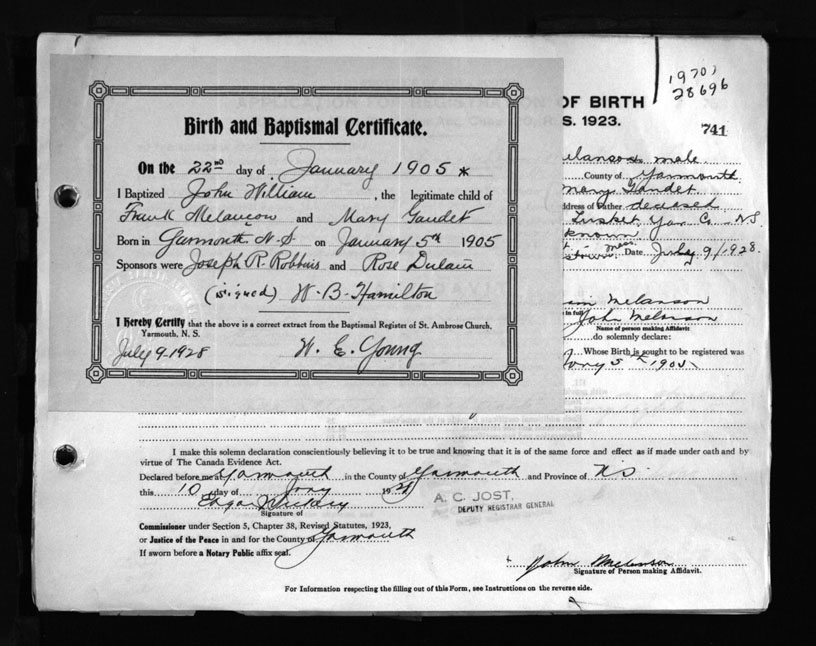 Birth and Baptismal Certificate.
On the 22nd day of January 1905 *
I Baptized John William, the legitimate child of
Frank Melançon and Mary Gaudet
Born in Yarmouth N.S on January 5th 1905
Sponsors were Joseph R. Robbins and Rose Dulain
(signed) W-B-Hamilton
I Hereby Certify that the above is a correct extract from the Baptismal Register of St. Ambrose Church,
Yarmouth, N. S.
July 9-1928 W. E. Young
OF BIRTH
S. 1923.
19701
28696
741
elanson male
County of Yarmouth
Mary Gaudet
ddress of Father deceased
Tusket, Yar. Co. N.S.
known
Mass. Date July 9/1928.
Melanson
in full John Melanson
Name of person making Affidavit
do solemnly declare:
Whose Birth is sought to be registered was
5 1905
I make this solemn declaration conscientiously believing it to be true and knowing that it is of the same force and effect as if made under oath and by
virtue of The Canada Evidence Act.
Declared before me at Yarmouth in the County of Yarmouth and Province of N.S.
this 10 day of 1928
A. C. JOST,
DEPUTY REGISTRAR GENERAL
Edgar
Signature of
Commissioner under Section 5, Chapter 38, Revised Statutes, 1923,
or Justice of the Peace in and for the County of Yarmouth
If sworn before a Notary Public affix seal.
John Melanson
Signature of Person making Affidavit.
For Information respecting the filling out of this Form, see Instructions on the reverse side.